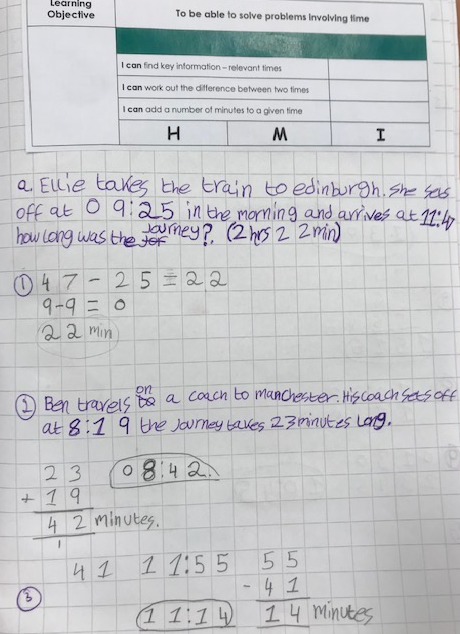 Learning
Objective
To be able to solve problems involving time
I can find key information – relevant times
I can work out the difference between two times
I can add a number of minutes to a given time
H M I
a. Ellie takes the train to edinburgh. she sets
off at 09:25 in the morning and arrives at 11:47
how long was the journey?. (2hrs 22min)
① 47 - 25 = 22
9-9 = 0
22 min
② Ben travels on a coach to manchester. His coach sets off
at 8:19 the journey takes 23 minutes long.
23 08:42.
+ 19
42 minutes.
1
41 11:55 55
- 41
③ 11:14 14 minutes